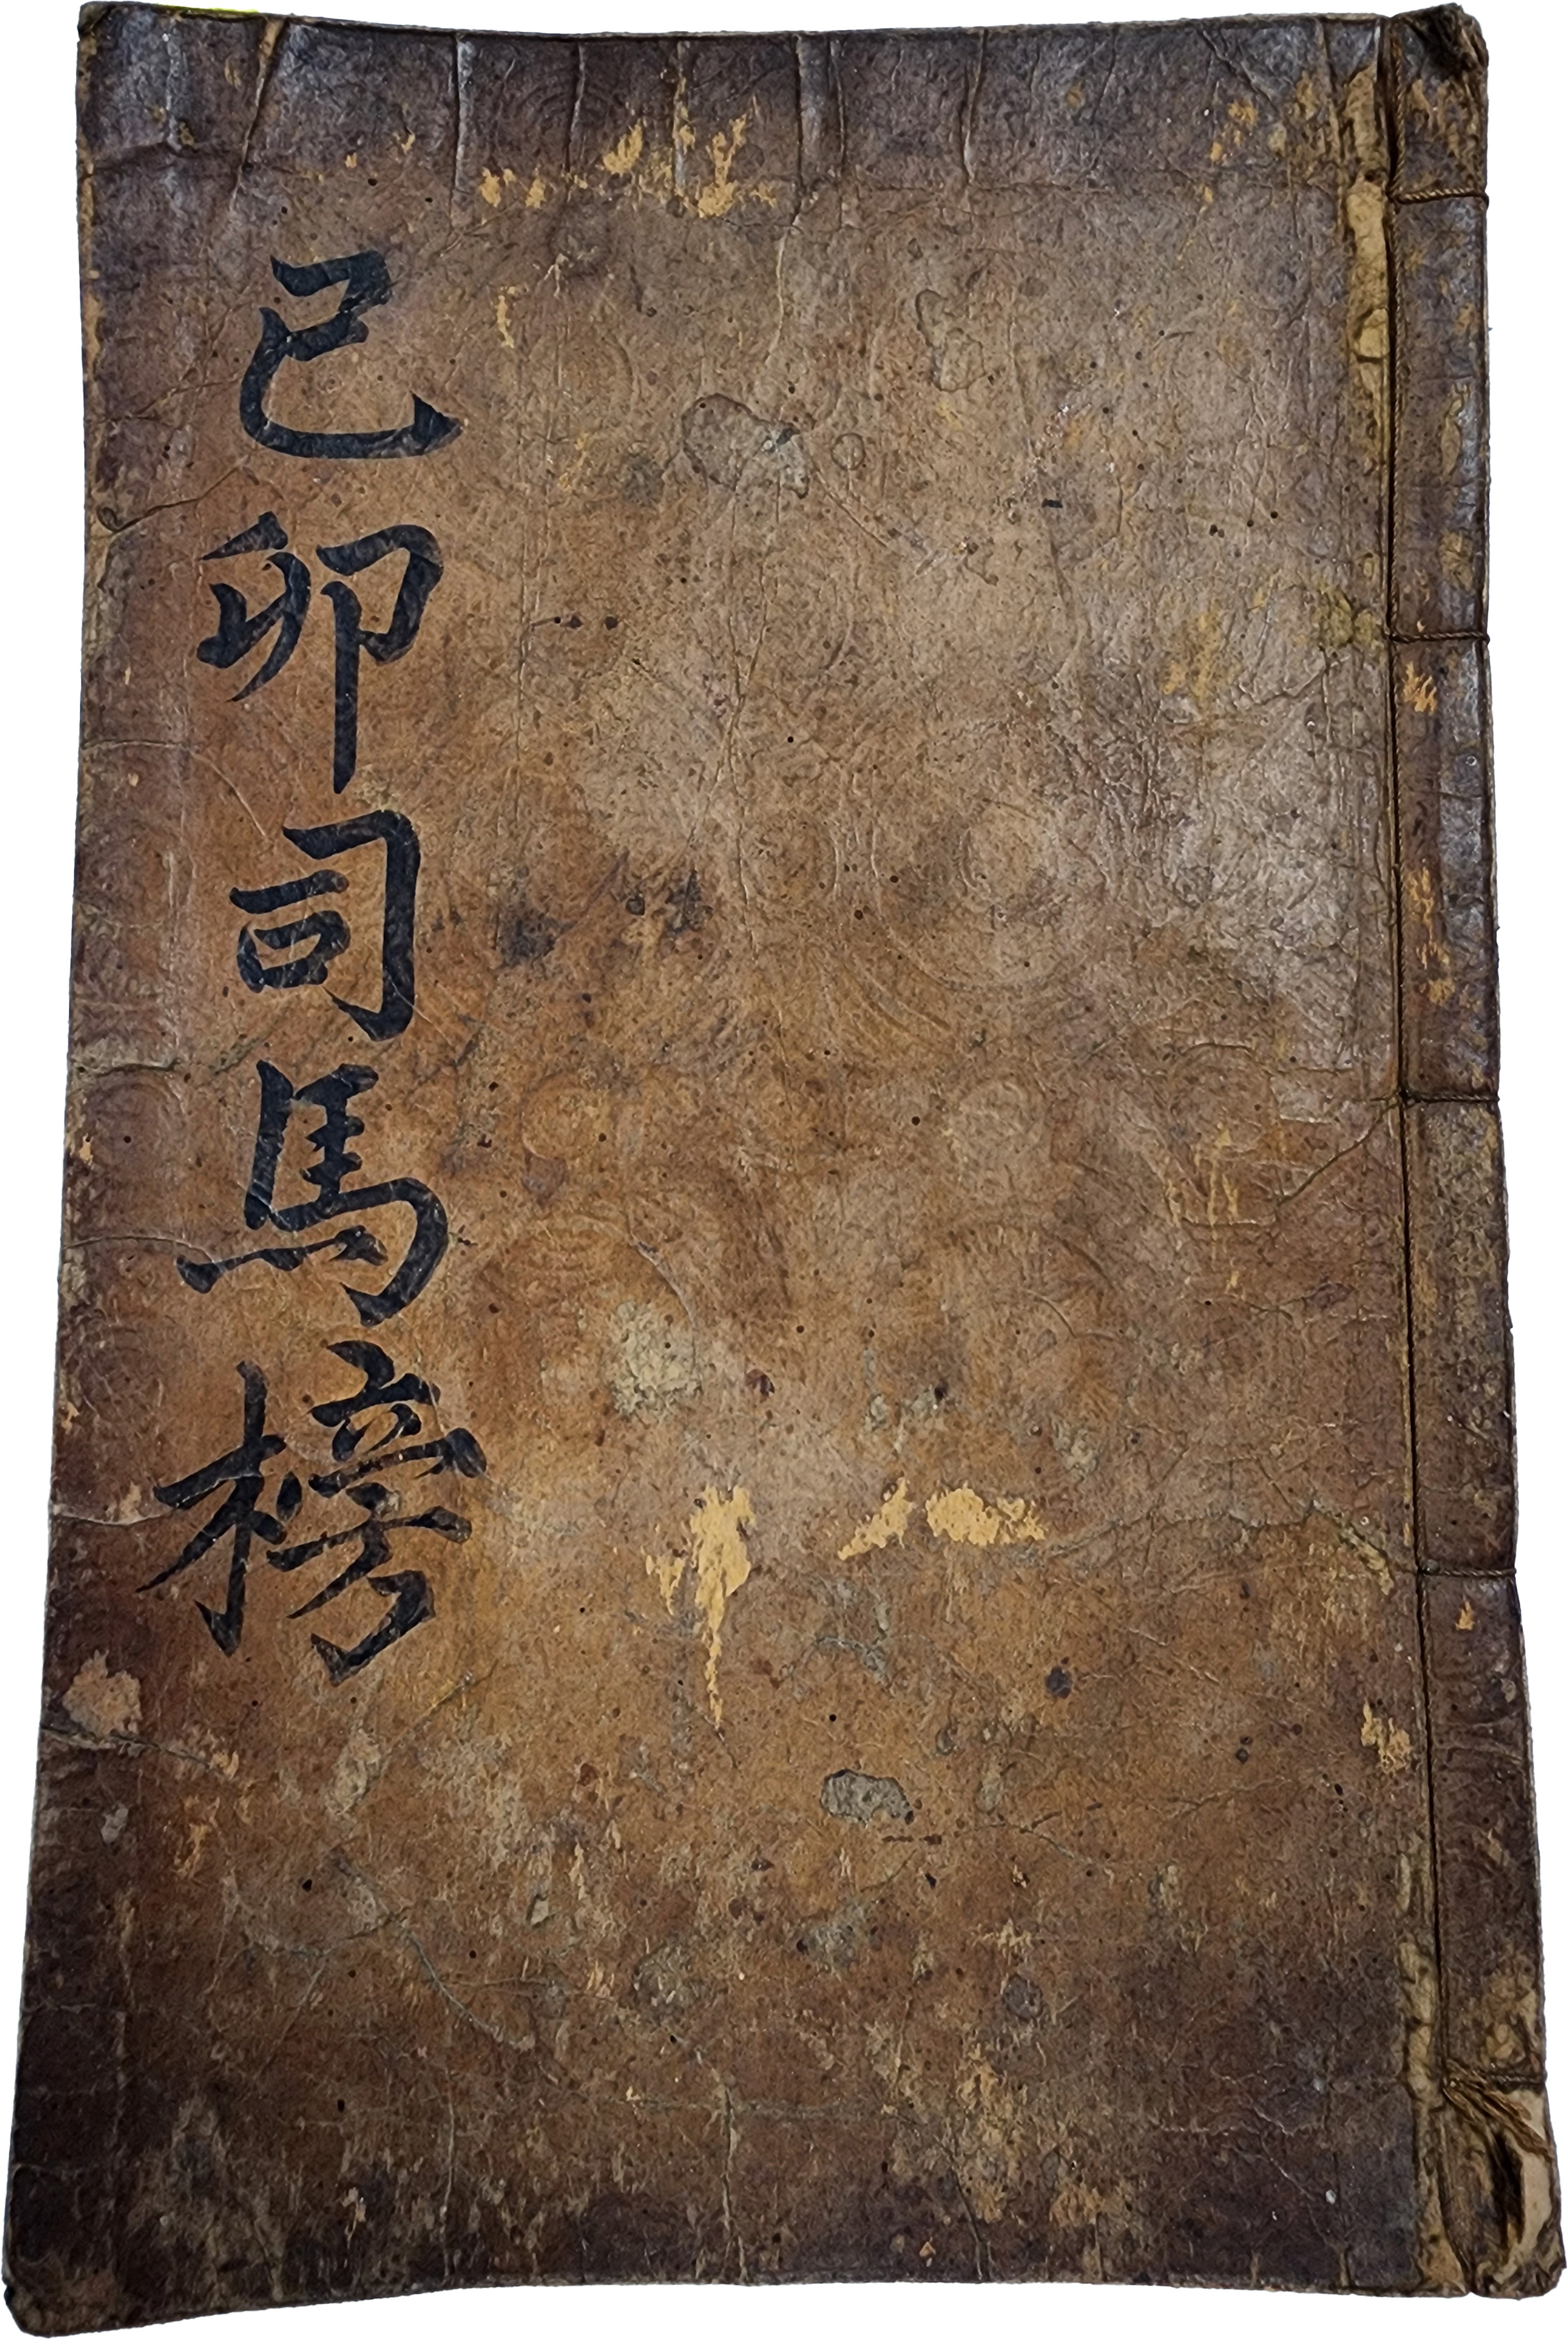 己卯司馬榜